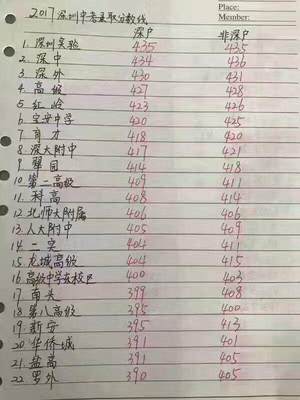 Place:
Member:
2017深圳中考录取分数线
深户 非深户
1. 深圳实验 435 435
2. 深中 434 436
3. 深外 430 431
4. 高级 427 428
5. 红岭 423 426
6 宝安中学 420 425
7 育才 418 420
8 深大附中 417 421
9 翠园 414 418
10 第二高级 409 411
11 科高 408 414
12 北师大附属 406 406
13 人大附中 405 409
14 二实 404 411
15 龙城高级 404 415
16 高级中学东校区 400 403
17 南头 399 408
18 第八高级 395 400
19 新安 395 413
20 华侨城 391 401
21. 盐高 391 405
22 罗外 390 405